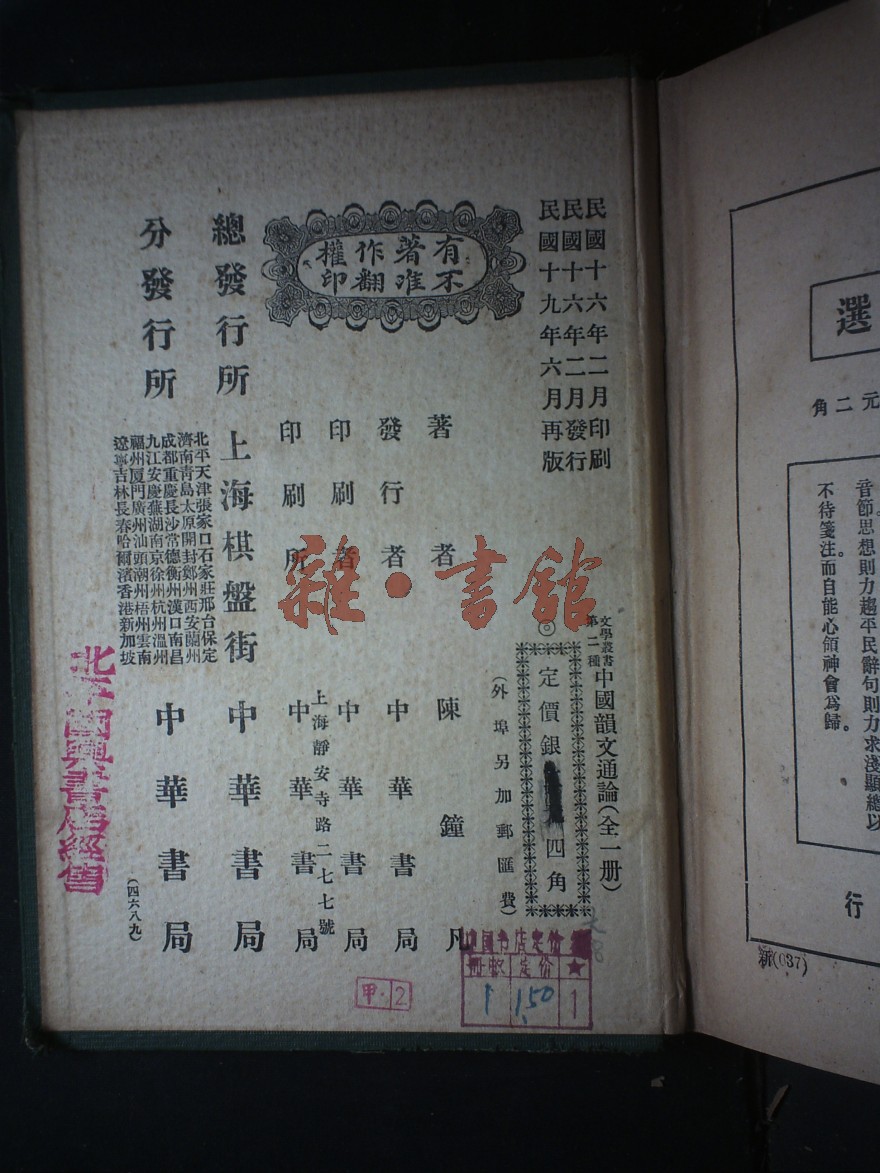 民國十六年二月印刷
民國十六年二月發行
民國十九年六月再版
文學叢書
第二種
中國韻文通論(全一册)
◎
定價銀
四角
(外埠另加郵匯費)
有著作權
不准翻印
著者 陳鐘凡
發行者 中華書局
印刷者 中華書局
上海靜安寺路二七七號
印刷所 中華書局
總發行所 上海棋盤街 中華書局
分發行所
北平天津張家口石家莊邢台保定
濟南青島太原開封鄭州西安蘭州
成都重慶長沙常德衡州漢口南昌
九江安慶蕪湖南京徐州杭州溫州
福州厦門廣州汕頭潮州梧州雲南
遼寧吉林長春哈爾濱香港新加坡
中華書局
(四六八九)
北平國興書店經售
雜·書館
中国书店定价
册数 定价 ★
1 1.50 1
甲·2
選
元二角
音節思想則力趨平民辭句則力求淺顯總以
不待箋注而自能心領神會爲歸。
行
新(037)